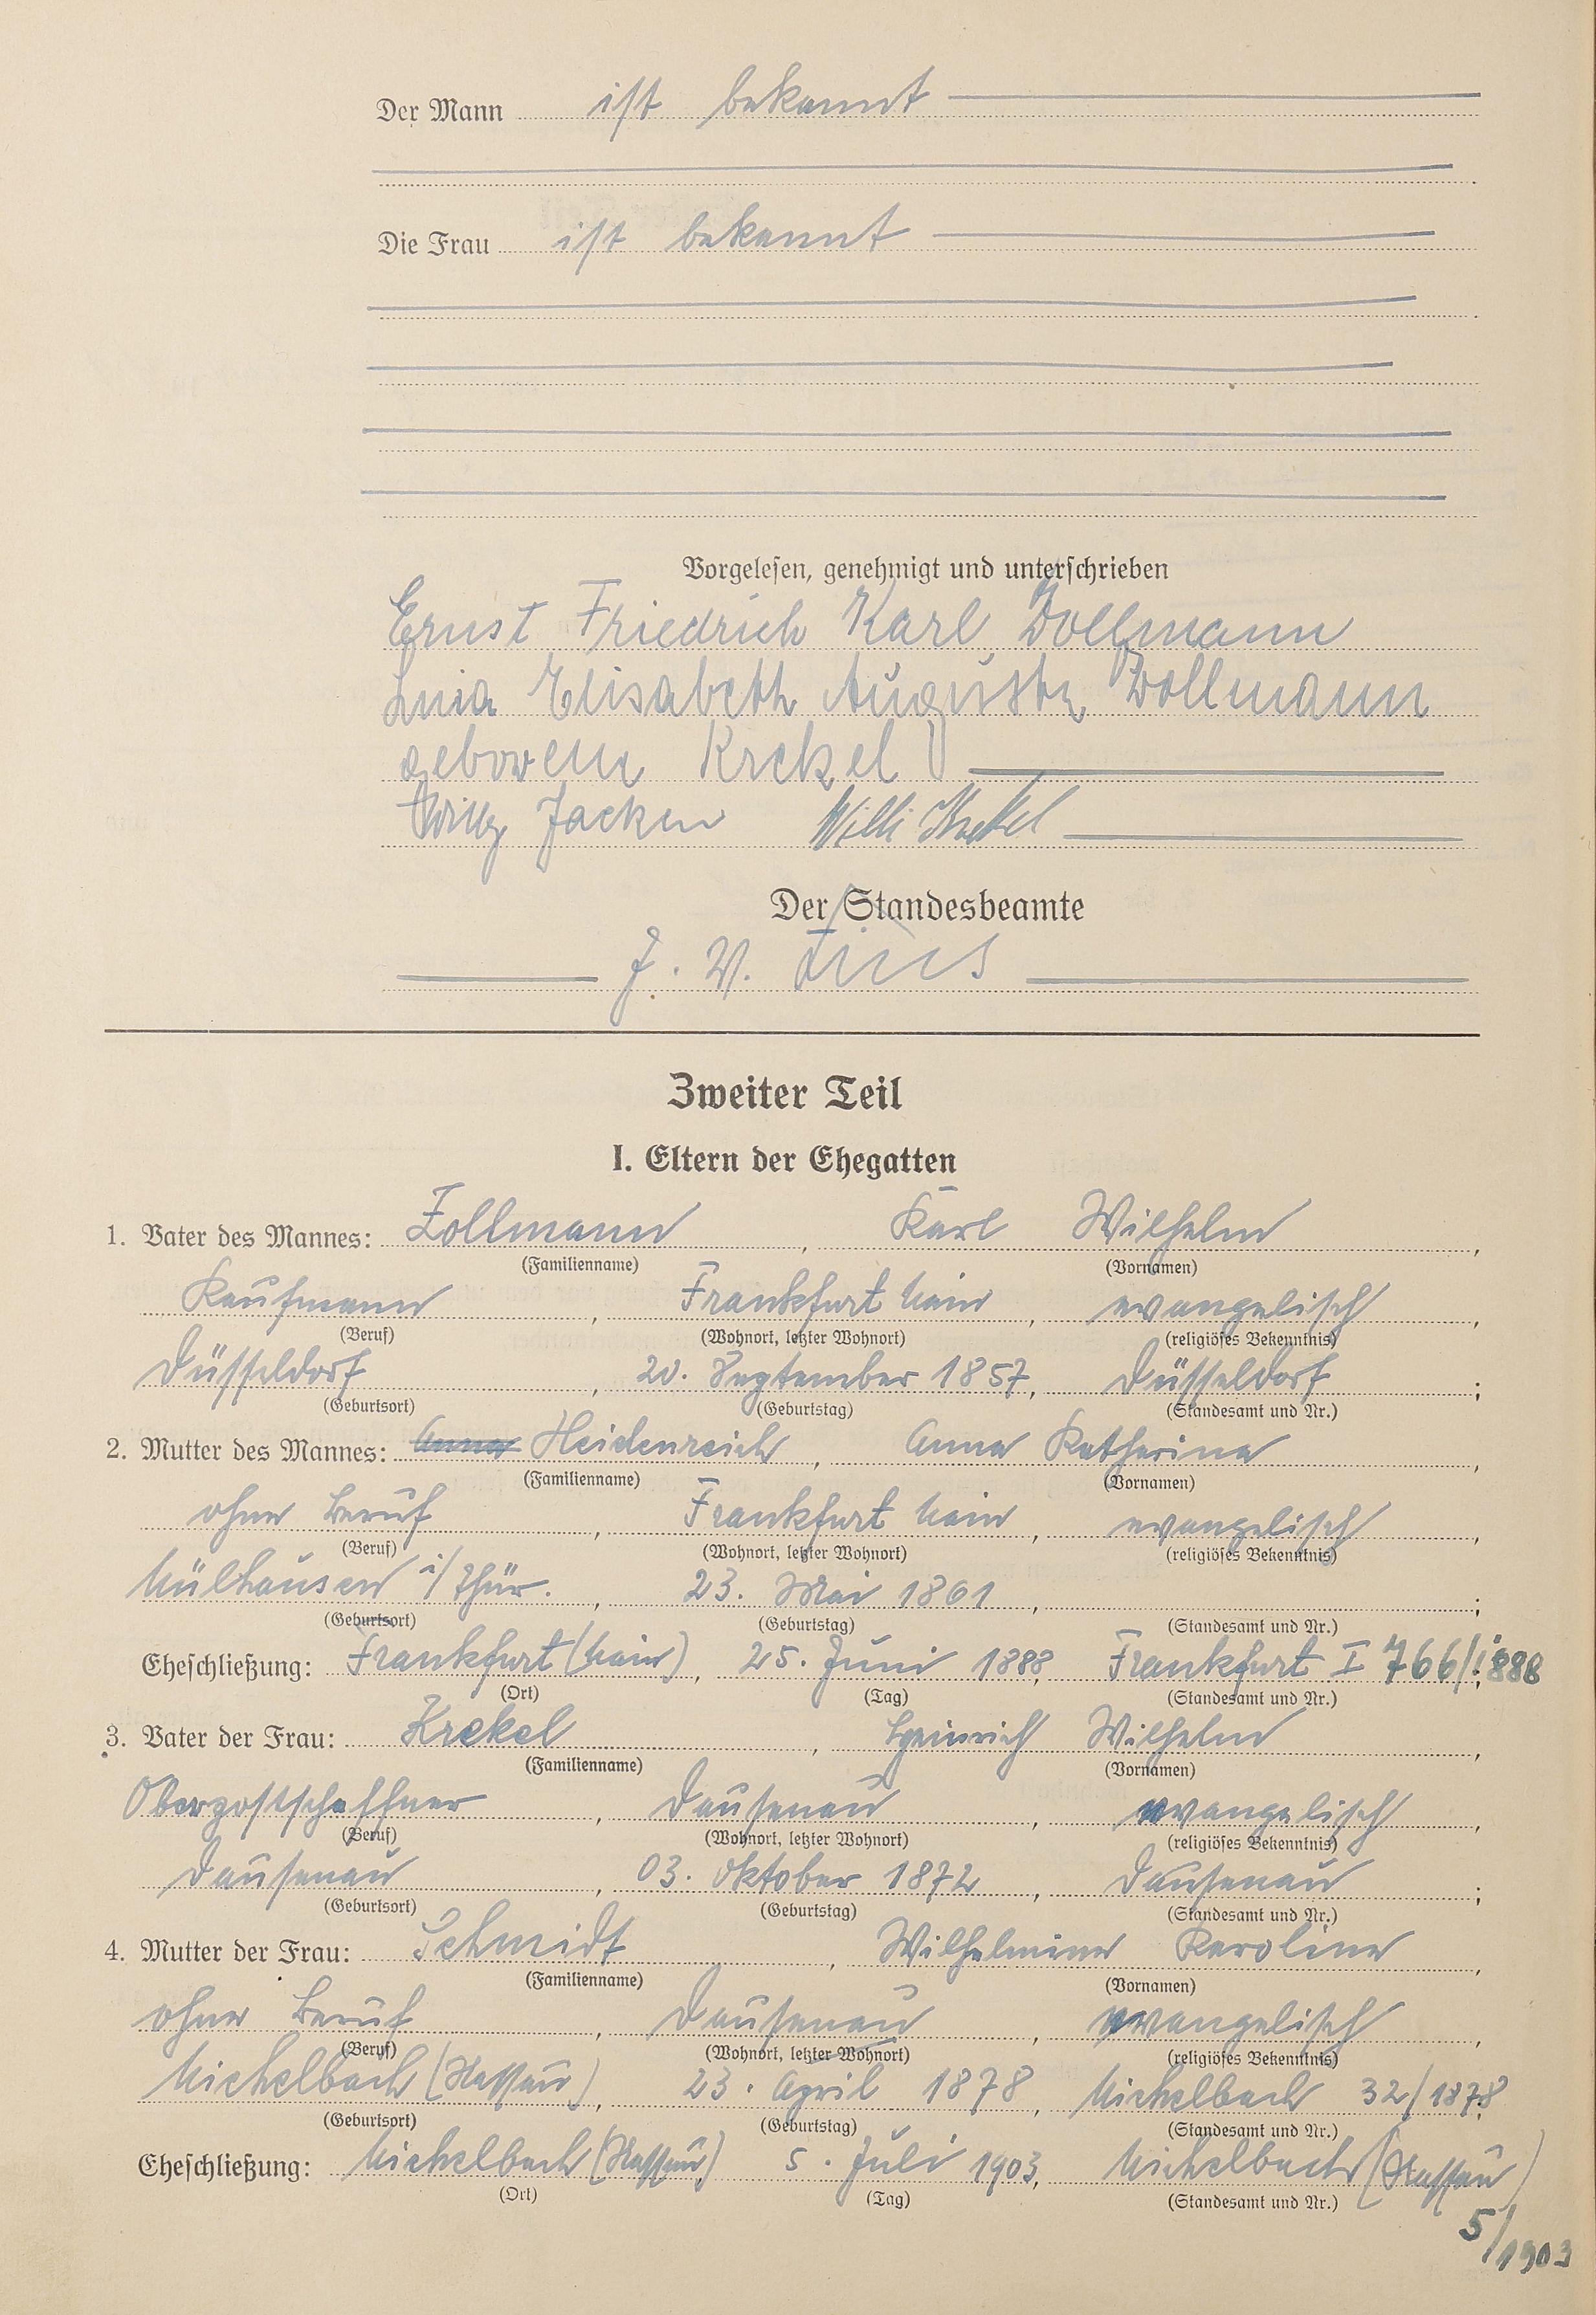 Der Mann ist bekannt
Die Frau ist bekannt
Vorgelesen, genehmigt und unterschrieben
Ernst Friedrich Karl Zollmann
Elisabeth Auguste Zollmann
geborene Krekel
Willy Jacken Willi Krekel
Der Standesbeamte
J. V.
Zweiter Teil
I. Eltern der Ehegatten
1. Vater des Mannes: Zollmann, Karl Wilhelm,
(Familienname) (Vornamen)
Kaufmann, Frankfurt Main, evangelisch,
(Beruf) (Wohnort, letzter Wohnort) (religiöses Bekenntnis)
Düsseldorf, 20. September 1857, Düsseldorf;
(Geburtsort) (Geburtstag) (Standesamt und Nr.)
2. Mutter des Mannes: Anna Heidenreich, Anna Katharina,
(Familienname) (Vornamen)
ohne Beruf, Frankfurt Main, evangelisch,
(Beruf) (Wohnort, letzter Wohnort) (religiöses Bekenntnis)
Mülhausen i/Thür., 23. Mai 1861, ;
(Geburtsort) (Geburtstag) (Standesamt und Nr.)
Eheschließung: Frankfurt (Main), 25. Juni 1888, Frankfurt I 766/1888;
(Ort) (Tag) (Standesamt und Nr.)
3. Vater der Frau: Krekel, Heinrich Wilhelm,
(Familienname) (Vornamen)
Oberpostschaffner, Dausenau, evangelisch,
(Beruf) (Wohnort, letzter Wohnort) (religiöses Bekenntnis)
Dausenau, 03. Oktober 1872, Dausenau;
(Geburtsort) (Geburtstag) (Standesamt und Nr.)
4. Mutter der Frau: Schmidt, Wilhelmine Karoline,
(Familienname) (Vornamen)
ohne Beruf, Dausenau, evangelisch,
(Beruf) (Wohnort, letzter Wohnort) (religiöses Bekenntnis)
Michelbach (Nassau), 23. April 1878, Michelbach 32/1878;
(Geburtsort) (Geburtstag) (Standesamt und Nr.)
Eheschließung: Michelbach (Nassau) 5. Juli 1903, Michelbach (Nassau)
(Ort) (Tag) (Standesamt und Nr.)
5/1903